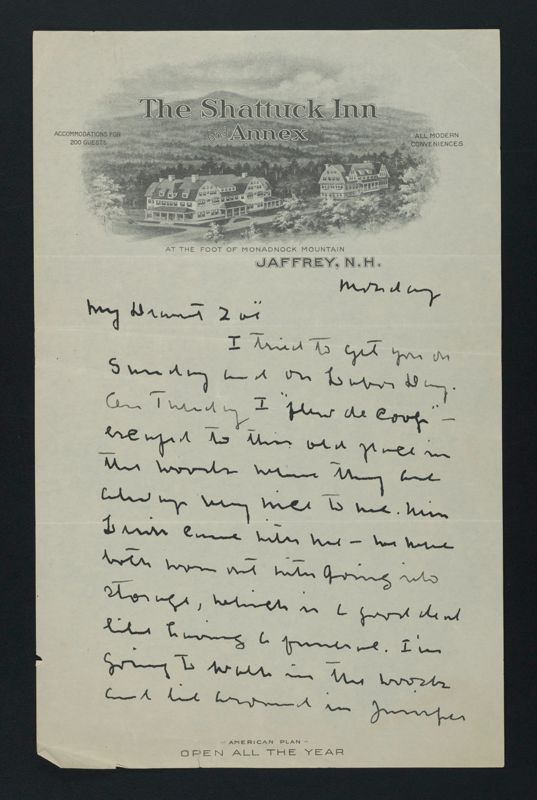 The Shattuck Inn
and Annex
ACCOMMODATIONS FOR
200 GUESTS
ALL MODERN
CONVENIENCES
AT THE FOOT OF MONADNOCK MOUNTAIN
JAFFREY, N.H.
Monday
My Dearest Zoë
I tried to get you on
Sunday and on Labor Day.
On Tuesday I "flew de coop" -
escaped to this old place in
the woods where they are
always very nice to me. Miss
Lewis came with me - we were
both worn out with going into
storage, which is a good deal
like having a funeral. I'm
going to walk in the woods
and lie around in Juniper
- AMERICAN PLAN -
OPEN ALL THE YEAR